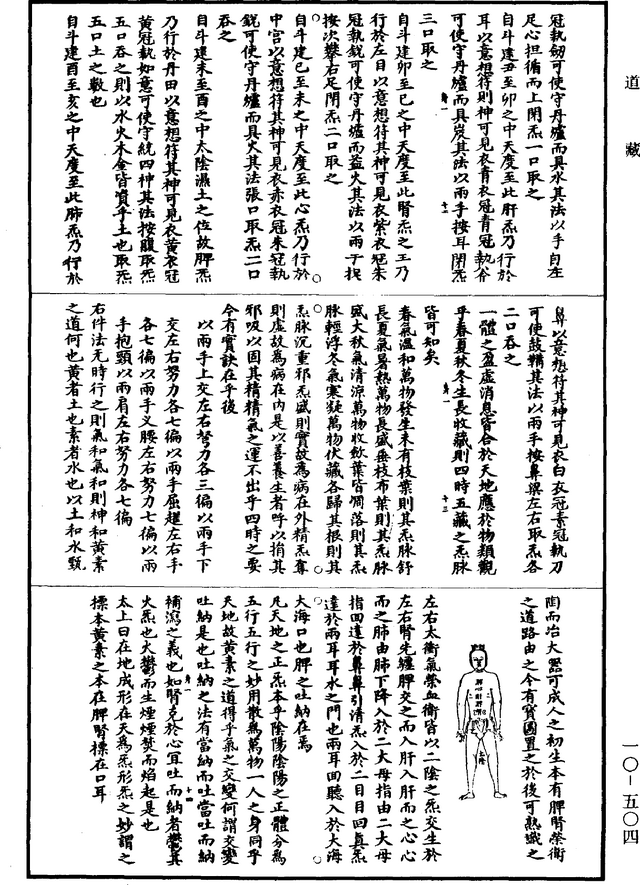 道藏
冠執劒可使守丹爐而具水其法以手自左
足心担循而上閉炁一口取之
自斗建丑至卯之中天度至此肝炁乃行於
耳以意想符則神可見衣青衣冠青冠執斧
可使守丹爐而具炭其法以兩手按耳閉炁
三口取之
自斗建卯至巳之中天度至此腎炁之王乃
行於左目以意想符其神可見衣紫衣冠朱
冠執銳可使守丹爐而益火其法以兩手捉
按次攀右足閉炁二口取之
自斗建巳至未之中天度至此心炁乃行於
中宮以意想符其神可見衣赤衣冠朱冠執
銳可使守丹爐而具火其法張口取炁二口
吞之
自斗建未至酉之中太陰濕土之位故脾炁
乃行於丹田以意想符其神可見衣黃衣冠
黃冠執如意可使守統四神其法按腹取炁
五口吞之則以水火木金皆質乎土也取炁
五口土之數也
自斗建酉至亥之中天度至此肺炁乃行於
鼻以意想符其神可見衣白衣冠素冠執刀
可使鼓鞴其法以兩手按鼻梁左右取炁各
二口吞之
一體之盈虛消息皆合於天地應於物類觀
乎春夏秋冬生長收藏則四時五藏之炁脉
皆可知矣
春氣溫和萬物發生未有枝葉則其炁脉舒
長夏氣暑熱萬物長盛垂枝布葉則其炁脉
盛大秋氣清涼萬物收斂葉皆凋落則其炁
脉輕浮冬氣寒凝萬物伏藏各歸其根則其
炁脉沉重邪炁盛則實故為病在外精炁奪
則虛故為病在內是以善養生者呼以捐其
邪吸以固其精精氣之運不出乎四時之要
今有實訣在乎後
以兩手上交左右努力各三徧以兩手下
交左右努力各七徧以兩手屈起左右手
各七徧以兩手义腰左右努力七徧以兩
手抱頸以兩肩左右努力各七徧
右件法无時行之則氣和氣和則神和黃素
之道何也黃者土也素者水也以土和水甄
陶而冶大器可成人之初生本有脾腎榮衛
之道路由之今有寶圖置之於後可熟識之
左右太衝氣榮血衛皆以二陰之炁交生於
左右腎先纏脾交之而入肝入肝而之心心
而之肺由肺下降入於二大母指由二大母
指回達於鼻鼻引清炁入於二目目回真炁
達於兩耳耳水之門也兩耳回聽入於大海
大海口也脾之吐納在焉
凡天地之正炁本乎陰陽陰陽之正體分為
五行五行之妙用散為萬物一人之身同乎
天地故黃素之道得乎氣之交變何謂交變
吐納是也吐納之法有當納而吐當吐而納
補瀉之義也如腎克於心宜吐而納者鬱其
火炁也火鬱而生煙煙焚而焰起是也
太上曰在地成形在天為炁形炁之妙謂之
標本黃素之本在脾腎標在口耳
一〇－五〇四